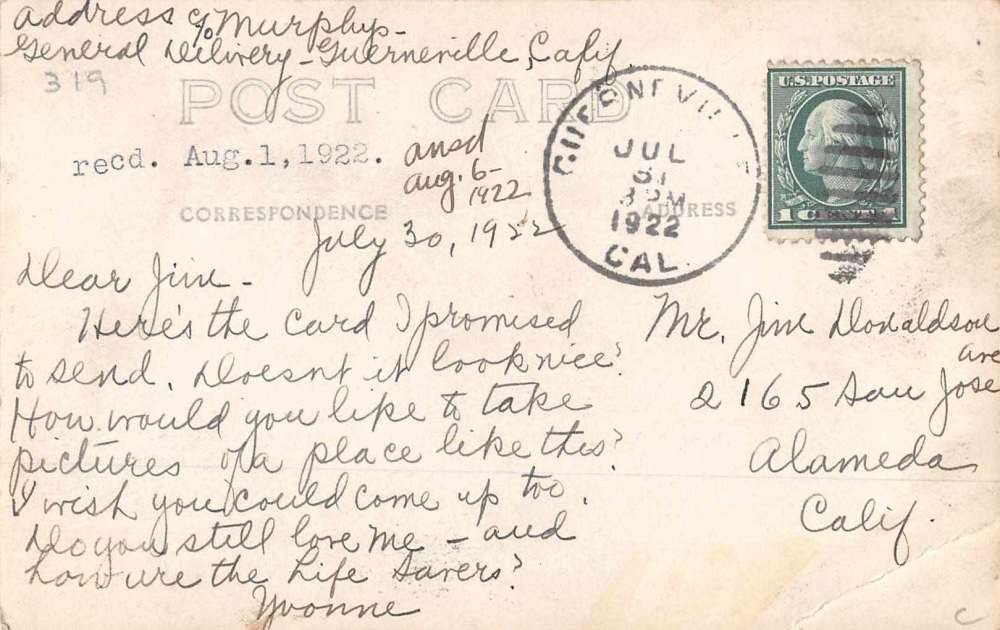 address c/o Murphys-
General Delivery - Guerneville, Calif.
319
POST CARD
U.S. POSTAGE
1 CENT 1
GUERNEVILLE
JUL
31
3 PM
1922
CAL.
recd. Aug.1,1922.
ansd
aug. 6-
1922
CORRESPONDENCE
ADDRESS
July 30, 1922
Dear Jim -
Here's the card I promised
to send. Doesnt it look nice?
How would you like to take
pictures of a place like this?
I wish you could come up too.
Do you still love me - and
how are the Life Savers?
Yvonne
Mr. Jim Donaldson
2165 San Jose ave
Alameda
Calif.
C